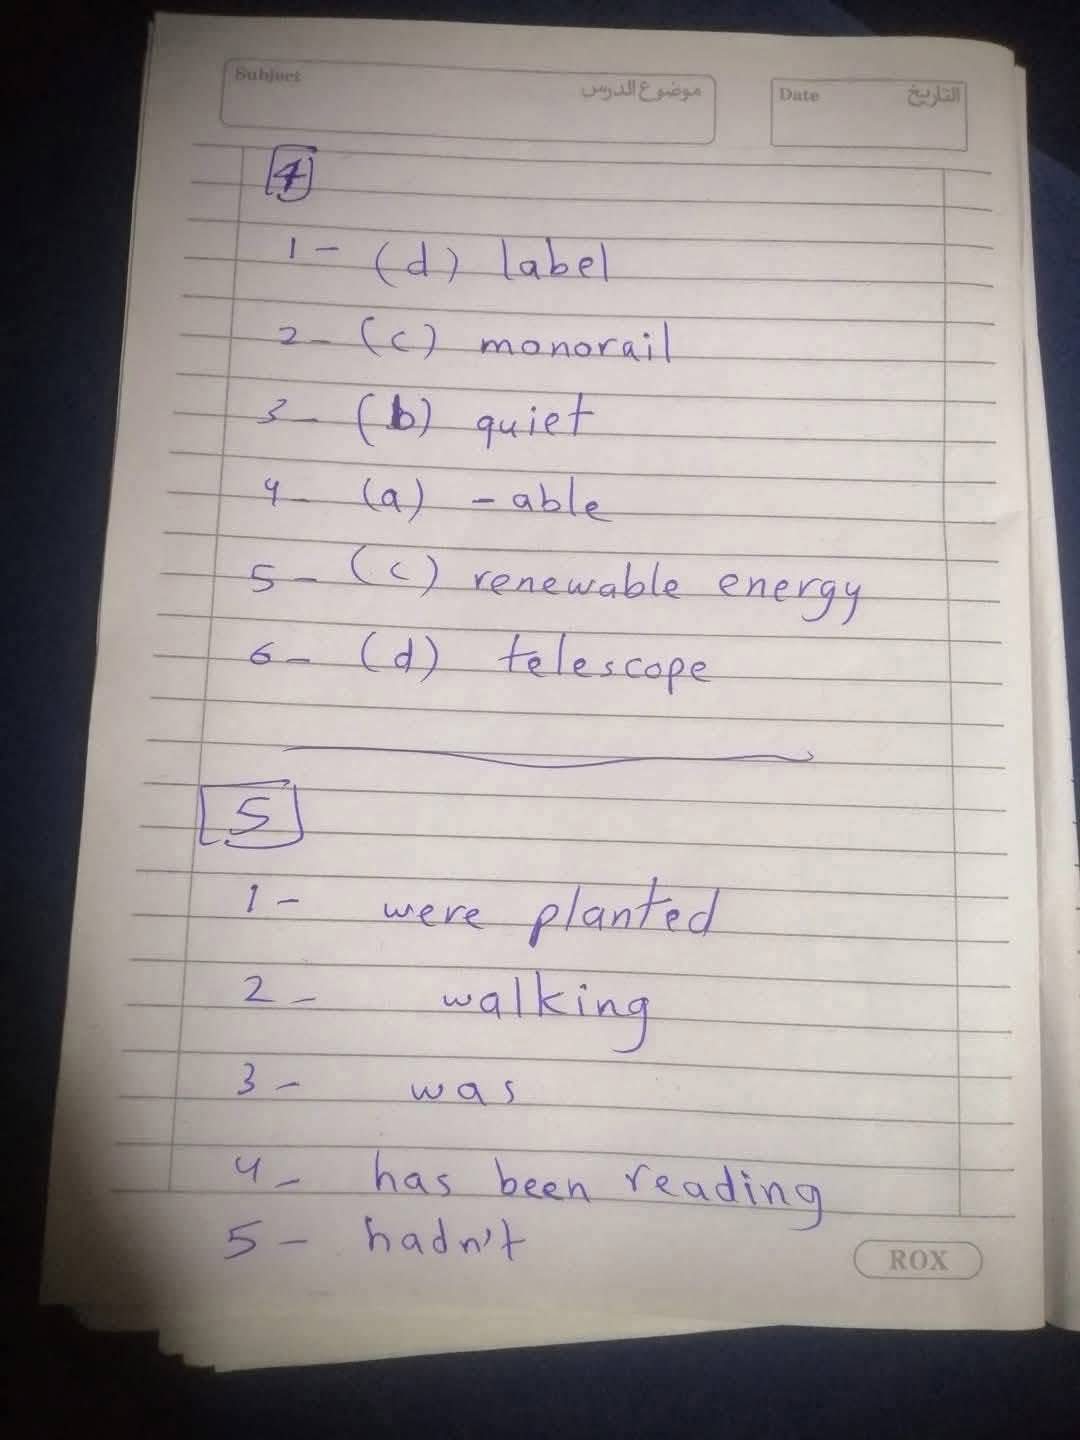 Subject موضوع الدرس
Date التاريخ
4
1 - (d) label
2 - (c) monorail
3 - (b) quiet
4 - (a) - able
5 - (c) renewable energy
6 - (d) telescope
5
1 - were planted
2 - walking
3 - was
4 - has been reading
5 - hadn't
ROX